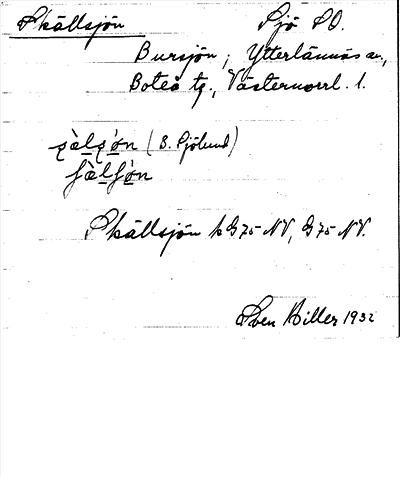 Skällsjön Sjö SO.
Bursjön, Ytterlännäs sn,
Boteå tg., Västernorrl. l.
(B. Sjölund)
Skällsjön k G75 NV, G75 NV.
Sven Hiller 1932